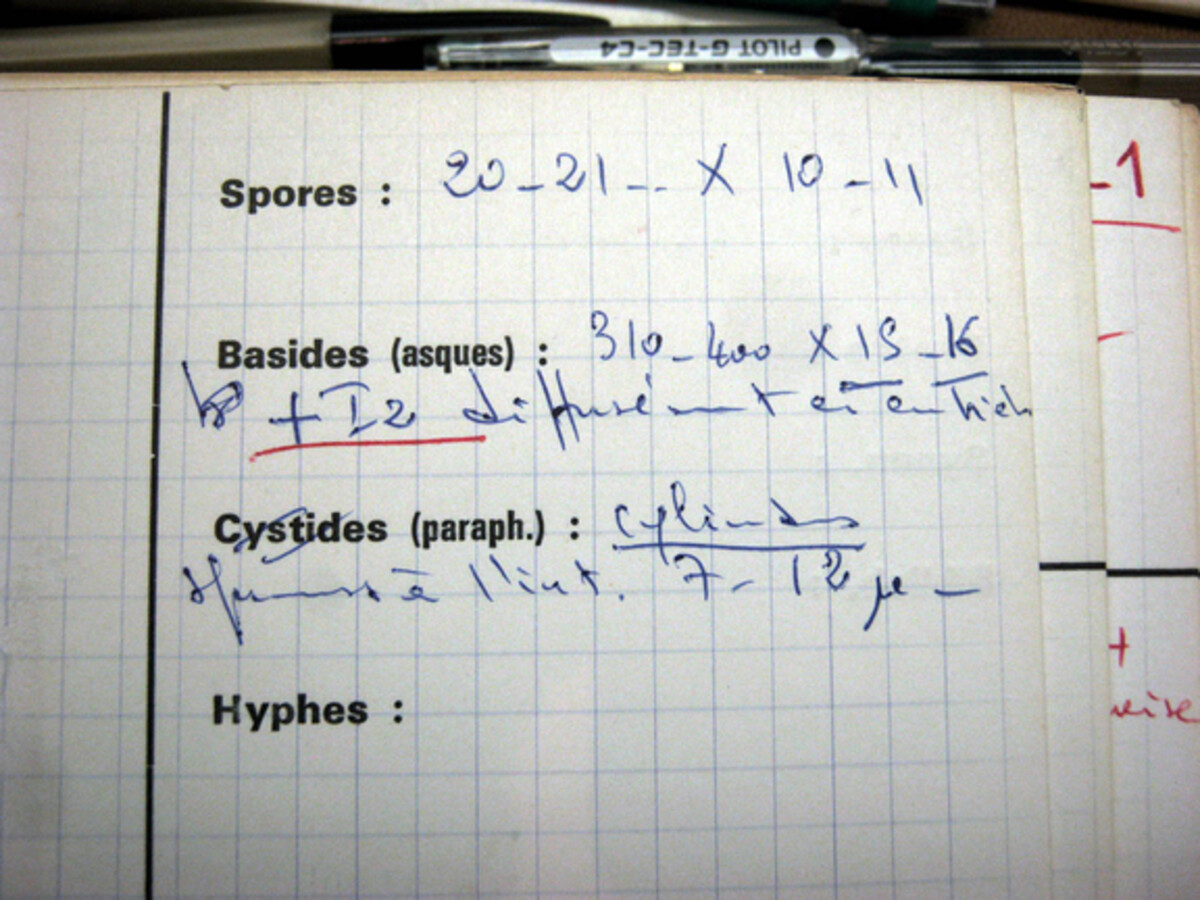 PILOT G-TEC-C4
-1
Spores : 20-21-.. X 10-11
Basides (asques) : 310-400 X 15-16
+ I2 diffusément et entier
Cystides (paraph.) : cylindres
à l'int. 7-12 µ -
+
Hyphes :